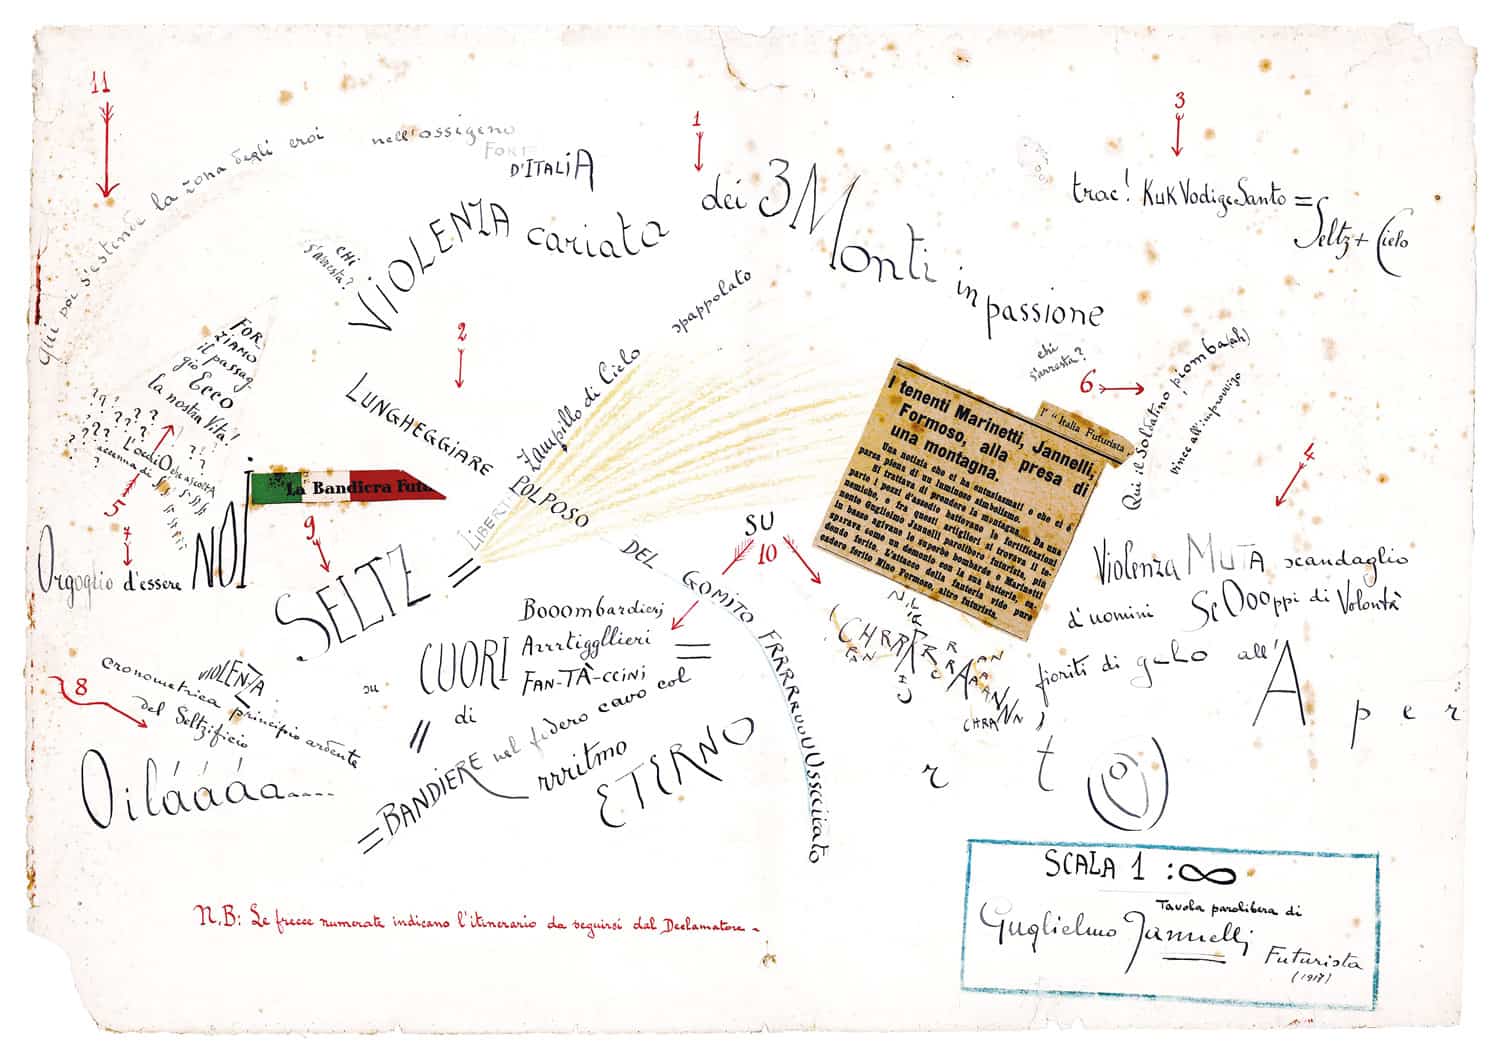 11
1
3
qui poi s'estende la zona degli eroi nell'ossigeno
FORTE
D'ITALIA
trac! KuK Vodige Santo =
Seltz + Cielo
VIOLENZA cariata dei 3 Monti in passione
CHI
s'arresta?
2
spappolato
Zampillo di Cielo
LUNGHEGGIARE
POLPOSO
DEL GOMITO FRRRRRuuUUUsscciato
FOR-
ZIAMO
il passag-
gio Ecco
la nostra Vita!
??! ? ?
L'
accanna di
5
7
La Bandiera Futu
Orgoglio d'essere NOI
9
SELTZ =
LIBERTÀ
chi
s'arresta?
6
Qui il Soldatino piomba(ah)
vince all'improvviso
l' "Italia Futurista
I tenenti Marinetti, Jannelli,
Formoso, alla presa di
una montagna.
Una notizia che ci ha entusiasmati e che ci è
parsa piena di un luminoso simbolismo.
Si trattava di prendere la montagna... Da una
parte i pezzi d'assedio battevano le fortificazioni
nemiche, fra questi artiglieri si trovava il te-
nente Guglielmo Jannelli parolibero futurista, più
in basso agivano le superbe bombarde e Marinetti
sparava come un demonio con la sua batteria, ca-
dendo ferito. L'attacco della fanteria vide pure
cadere ferito Nino Formoso, altro futurista.
4
Violenza MUTA scandaglio
d'uomini ScOOoppi di Volontà
fioriti di gelo all'A p e r
t
r
SU
10
CHRRARRRAAANNN
CHRANN
Booombardieri
CUORI Arrrtiggllieri
FAN-TÀ-CCINI
=
su
di
=
= BANDIERE nel fodero cavo col
rrritmo
ETERNO
8
VIOLENZA
cronometrica principio ardente
del Seltzificio
Oiláááá....
N.B: Le frecce numerate indicano l'itinerario da seguirsi dal Declamatore -
SCALA 1 : ∞
Tavola parolibera di
Guglielmo Jannelli
Futurista
(1917)